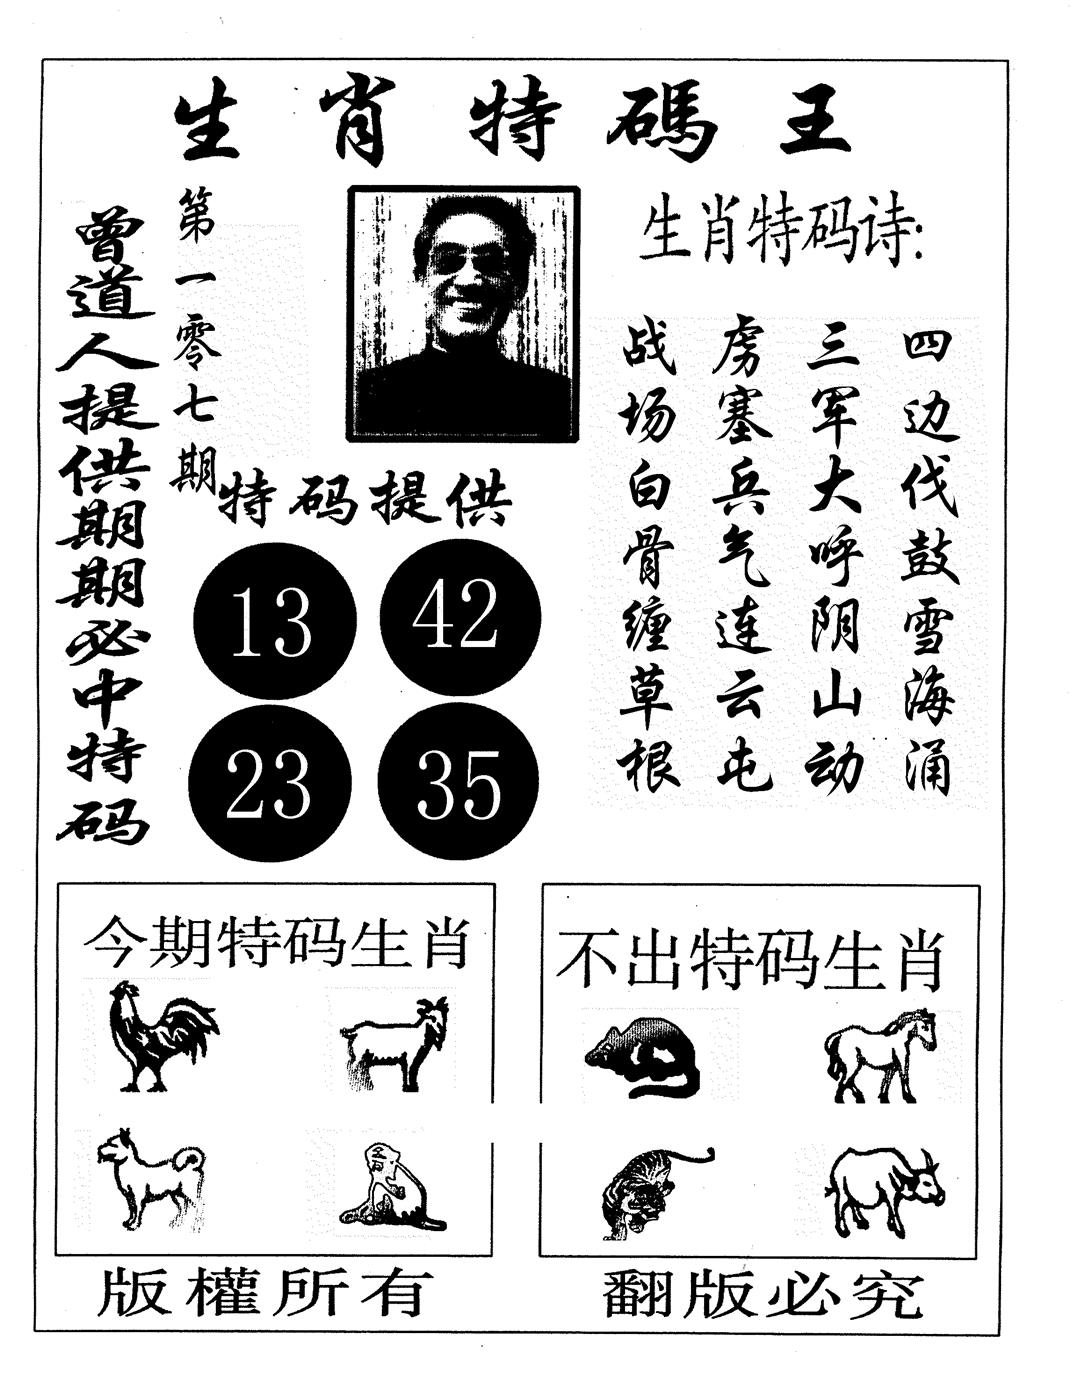 生肖特碼王
第一零七期
曾道人提供期期必中特码
生肖特码诗:
四边伐鼓雪海涌
三军大呼阴山动
虏塞兵气连云屯
战场白骨缠草根
特码提供
13 42
23 35
今期特码生肖
不出特码生肖
版權所有
翻版必究